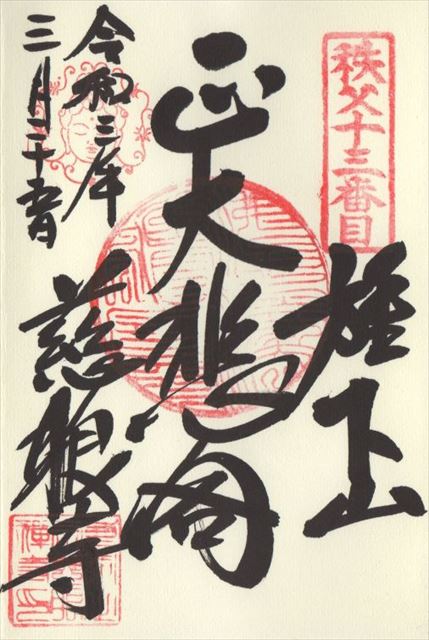 秩父十三番目
旗下山
正大悲閣
慈眼寺
令和三年
三月二十五日